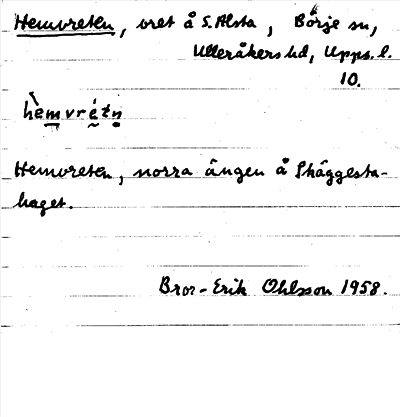 Hemvreten, vret å S. Alsta, Börje sn,
Ulleråkers hd, Upps. l.
10.
hèmvrétn
Hemvreten, norra ängen å Skäggesta-
haget.
Bror-Erik Ohlsson 1958.